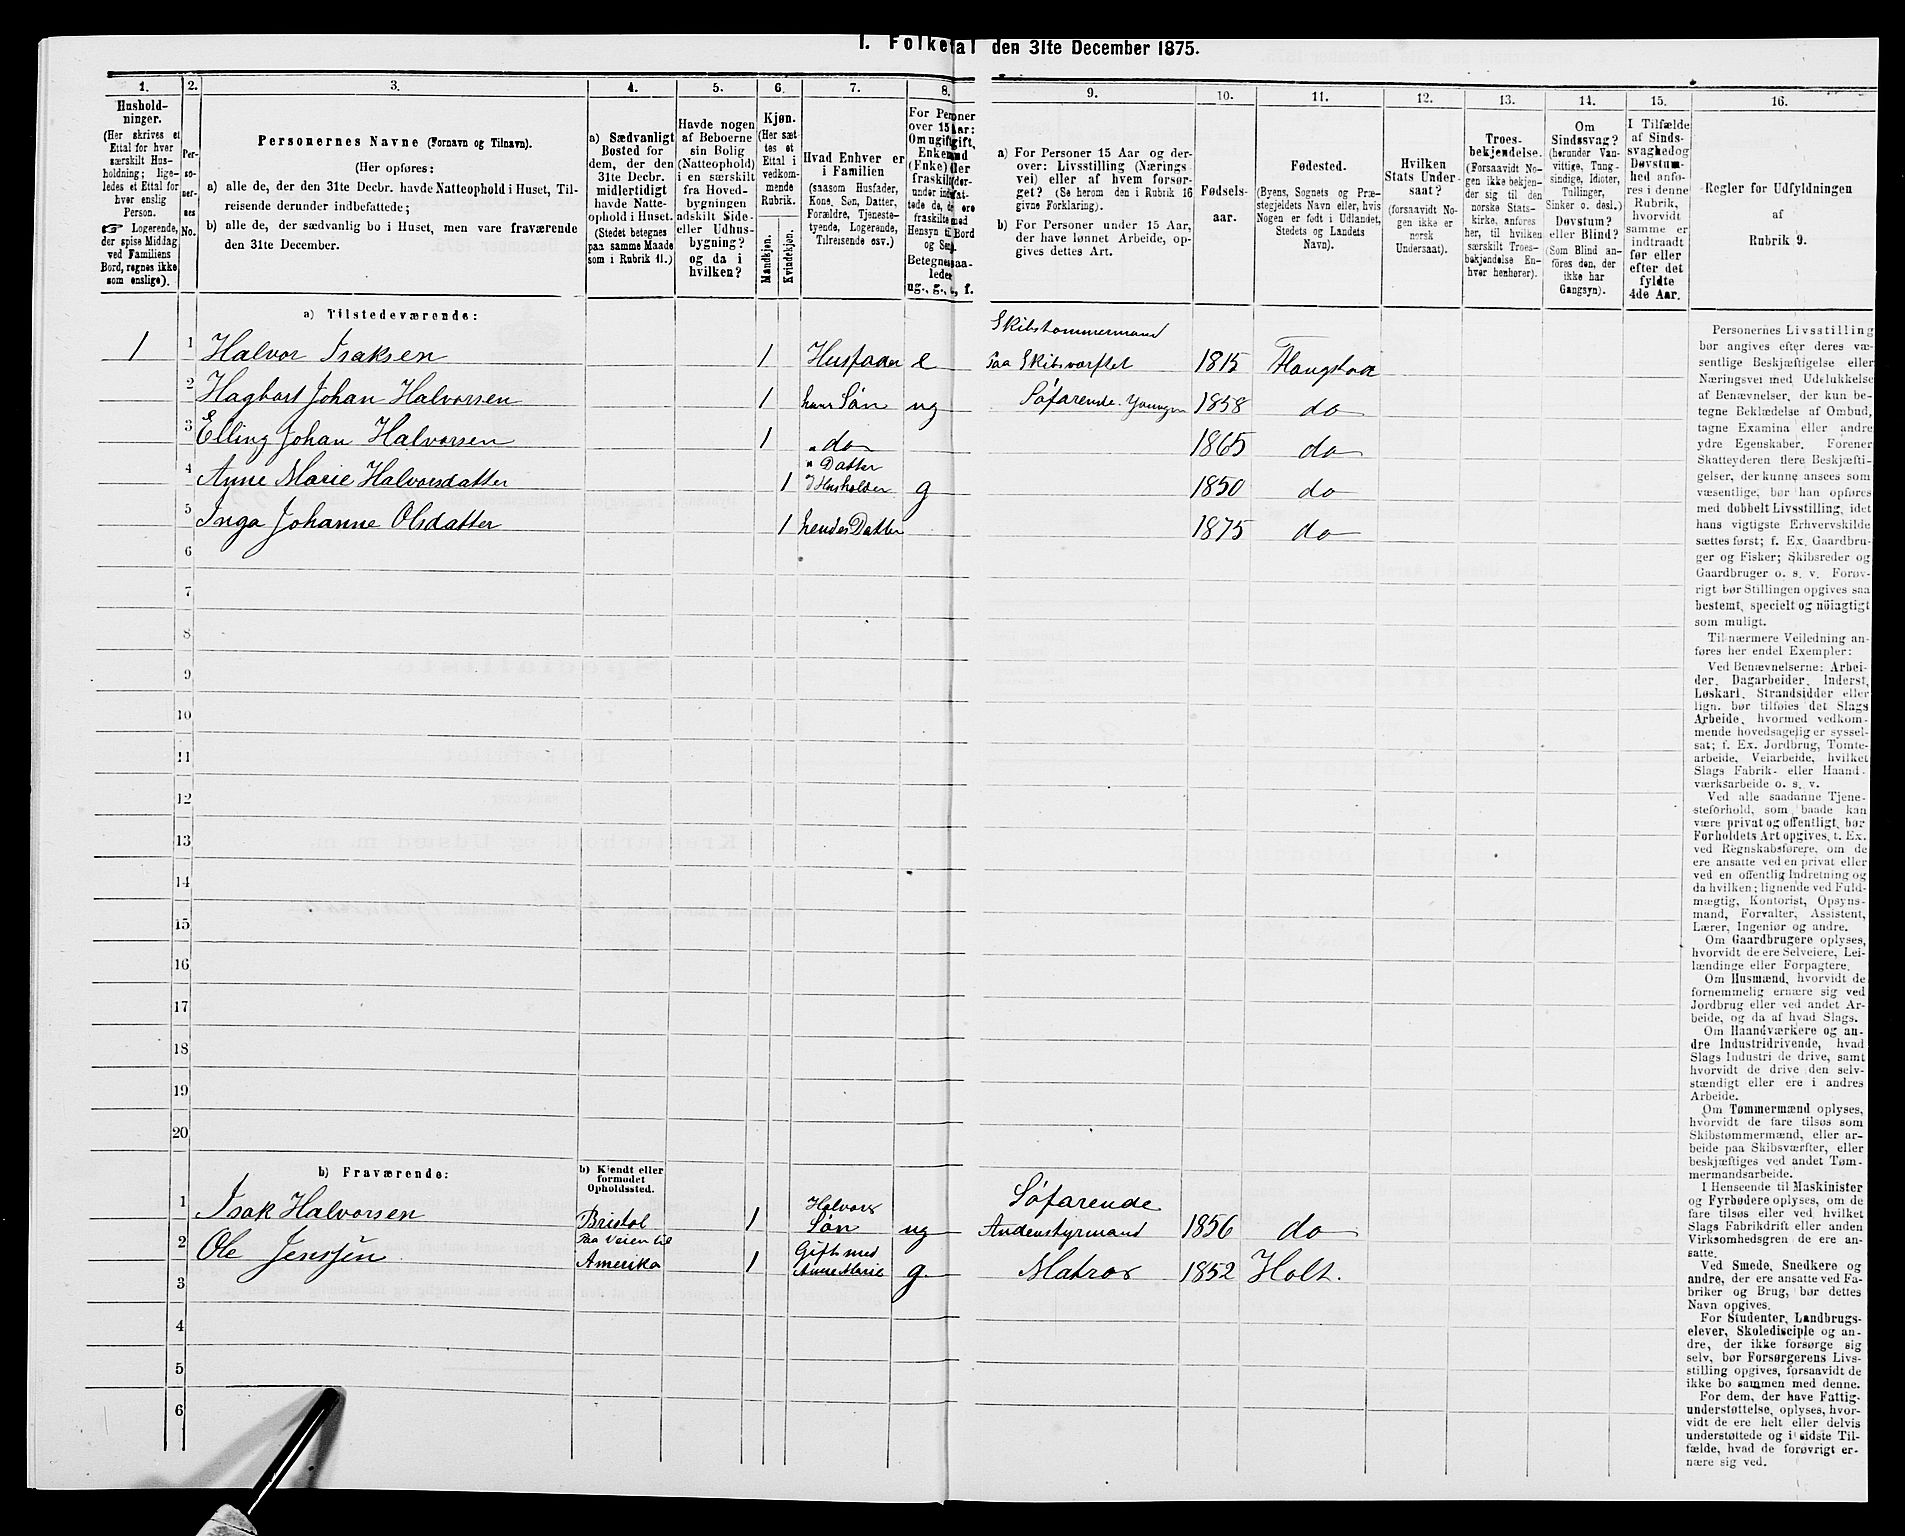 I. Folketal den 31te December 1875.
1. 2. 3. 4. 5. 6. 7. 8. 9. 10. 11. 12. 13. 14. 15. 16.
Hushold-
ninger.
(Her skrives et
Ettal for hver
særskilt Hus-
holdning; lige-
ledes et Ettal for
hver enslig
Person.
☞ Logerende,
der spise Middag
ved Familiens
Bord, regnes ikke
som enslige).
Per-
so-
ner-
nes
No.
Personernes Navne (Fornavn og Tilnavn).
(Her opføres:
a) alle de, der den 31te Decbr. havde Natteophold i Huset, Til-
reisende derunder indbefattede;
b) alle de, der sædvanlig bo i Huset, men vare fraværende
den 31te December.
a) Sædvanligt
Bosted for
dem, der den
31te Decbr.
midlertidigt
havde Natte-
ophold i Huset.
(Stedet betegnes
paa samme Maade
som i Rubrik 11.)
Havde nogen
af Beboerne
sin Bolig
(Natteophold)
i en særskilt
fra Hoved-
bygningen
adskilt Side-
eller Udhus-
bygning?
og da i
hvilken?
Kjøn.
(Her sæt-
tes et
Ettal i
vedkom-
mende
Rubrik.
Mandkjøn.
Kvindekjøn.
Hvad Enhver er
i Familien
(saasom Husfader,
Kone, Søn, Datter,
Forældre, Tjeneste-
tyende, Logerende,
Tilreisende osv.)
For Personer
over 15 Aar:
Om ugift, gift,
Enkemand
(Enke) eller
fraskilt
Betegnes saa-
ledes:
ug., g., e., f.
a) For Personer 15 Aar og der-
over: Livsstilling (Nærings
vei) eller af hvem forsør-
get? (Se herom den i Rubrik 16
givne Forklaring).
b) For Personer under 15 Aar,
der have lønnet Arbeide, op-
gives dettes Art.
Fødsels-
aar.
Fødested.
(Byens, Sognets og Præ-
stegjeldets Navn eller, hvis
Nogen er født i Udlandet,
Stedets og Landets
Navn).
Hvilken
Stats Under-
saat?
(forsaavidt No-
gen ikke er
norsk
Undersaat).
Troes-
bekjendelse.
(Forsaavidt No-
gen ikke bekjen-
der sig til den
norske Stats-
kirke, anføres
her, til hvilken
særskilt Troes-
bekjendelse En-
hver henhører).
Om
Sindssvag?
(herunder Van-
vittige, Tung-
sindige, Idioter,
Tullinger,
Sinker o. desl.)
Døvstum?
eller Blind?
(Som Blind an-
føres den, der
ikke har
Gangsyn).
I Tilfælde
af Sinds-
svaghed og
Døvstum-
hed anfø-
res i denne
Rubrik,
hvorvidt
samme er
indtraadt
før eller
efter det
fyldte
4de Aar.
Regler for Udfyldningen
af
Rubrik 9.
a) Tilstedeværende:
Skibstømmermand
1 1 Halvor Isaksen 1 Husfader e Paa Skibsværftet 1815
2 Hagbart Johan Halvorsen 1 hans Søn ug Søfarende. 1858 do
3 Elling Johan Halvorsen 1 " do 1865 do
" Datter
4 Anne Marie Halvorsdatter 1 Husholder g 1850 do
5 Inga Johanne Olsdatter 1 hendes Datter 1875 do
6
7
8
9
10
11
12
13
14
15
16
17
18
19
20
b) Fraværende:
b) Kjendt eller
formodet
Opholdssted.
Halvors Søfarende
1 Isak Halvorsen Bristol 1 Søn ug Andenstyrmand 1856 do
Paa Veien til Gift med
2 Ole Jenssen Amerika 1 Anne Marie g. Matros 1852 Holt.
3
4
5
6
Personernes Livsstilling
bør angives efter deres væ-
sentlige Beskjæftigelse eller
Næringsvei med Udelukkelse
af Benævnelser, der kun be-
tegne Beklædelse af Ombud,
tagne Examina eller andre
ydre Egenskaber. Forener
Skatteyderen flere Beskjæfti-
gelser, der kunne ansees som
væsentlige, bør han opføres
med dobbelt Livsstilling, idet
hans vigtigste Erhvervskilde
sættes først; f. Ex. Gaardbru-
ger og Fisker; Skibsreder og
Gaardbruger o. s. v. Forøv-
rigt bør Stillingen opgives saa
bestemt, specielt og nöiagtigt
som muligt.
Til nærmere Veiledning an-
føres her endel Exempler:
Ved Benævnelserne: Arbei-
der, Dagarbeider, Inderst,
Løskarl, Strandsidder eller
lign. bør tilføies det Slags
Arbeide, hvormed vedkom-
mende hovedsagelig er syssel-
sat; f. Ex. Jordbrug, Tomte-
arbeide, Veiarbeide, hvilket
Slags Fabrik- eller Haand-
værksarbeide o. s. v.
Ved alle saadanne Tjene-
steforhold, som baade kan
være privat og offentligt, bør
Forholdets Art opgives, t. Ex.
ved Regnskabsførere, om de
ere ansatte ved en privat eller
ved en offentlig Indretning og
da hvilken; lignende ved Fuld-
mægtig, Kontorist, Opsyns-
mand, Forvalter, Assistent,
Lærer, Ingeniør og andre.
Om Gaardbrugere oplyses,
hvorvidt de ere Selveiere, Lei-
lændinge eller Forpagtere.
Om Husmænd, hvorvidt de
fornemmelig ernære sig ved
Jordbrug eller ved andet Ar-
beide, og da af hvad Slags.
Om Haandværkere og an-
dre Industridrivende, hvad
Slags Industri de drive, samt
hvorvidt de drive den selv-
stændigt eller ere i andres
Arbeide.
Om Tømmermænd oplyses,
hvorvidt de fare tilsøs som
Skibstømmermænd, eller ar-
beide paa Skibsværfter, eller
beskjæftiges ved andet Tøm-
mermandsarbeide.
I Henseende til Maskinister
og Fyrbødere oplyses, om de
fare tilsøs eller ved hvilket
Slags Fabrikdrift eller anden
Virksomhedsgren de ere an-
satte.
Ved Smede, Snedkere og
andre, der ere ansatte ved Fa-
briker og Brug, bør dettes
Navn opgives.
For Studenter, Landbrugs-
elever, Skoledisciple og an-
dre, der ikke forsørge sig
selv, bør Forsørgerens Livs-
stilling opgives, forsaavidt de
ikke bo sammen med denne.
For dem, der have Fattig-
understøttelse, oplyses, hvor-
vidt de ere helt eller delvis
understøttede og i sidste Til-
fælde, hvad de forøvrigt er-
nære sig ved.